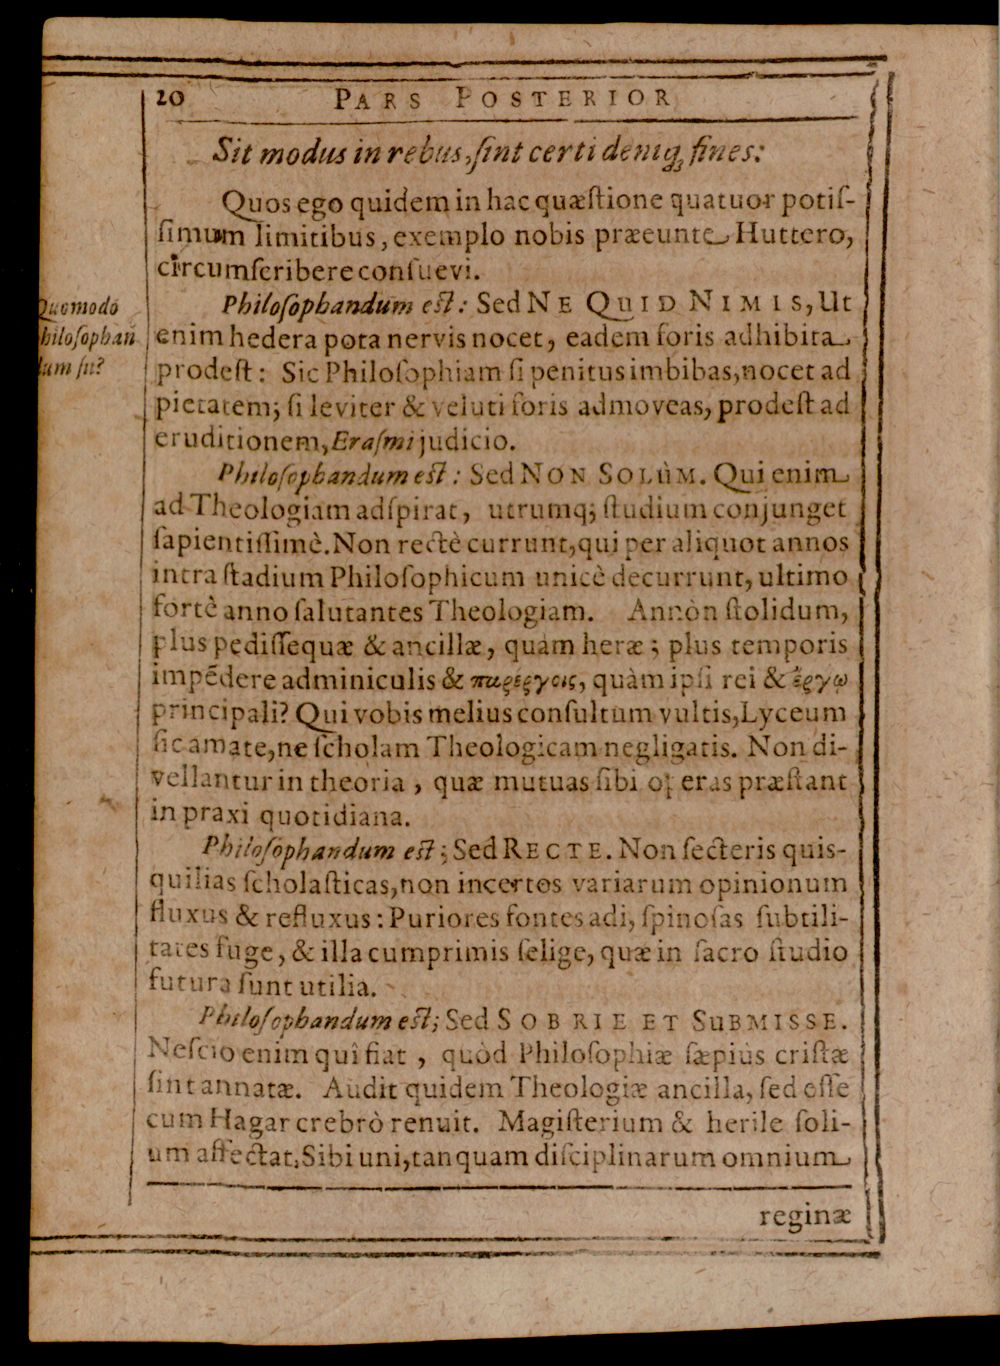 20 PARS POSTERIOR
Sit modus in rebus, ſint certi deniq; fines:
Quos ego quidem in hac quæſtione quatuor potiſ-
ſimum limitibus, exemplo nobis præeunte Huttero,
circumſcribere conſuevi.
Quomodo
philoſophan
dum ſit?
Philoſophandum eſt: Sed NE QUID NIMIS, Ut
enim hedera pota nervis nocet, eadem foris adhibita
prodeſt: Sic Philoſophiam ſi penitus imbibas, nocet ad
pietatem; ſi leviter & veluti foris admoveas, prodeſt ad
eruditionem, Eraſmi judicio.
Philoſophandum eſt: Sed NON SOLùM. Qui enim
ad Theologiam adſpirat, utrumq; ſtudium conjunget
ſapientiſſimè. Non rectè currunt, qui per aliquot annos
intra ſtadium Philoſophicum unicè decurrunt, ultimo
fortè anno ſalutantes Theologiam. Annòn ſtolidum,
plus pediſſequæ & ancillæ, quàm heræ; plus temporis
impēdere adminiculis & παρέργοις, quàm ipſi rei & ἔργῳ
principali? Qui vobis melius conſultum vultis, Lyceum
ſic amate, ne ſcholam Theologicam negligatis. Non di-
vellantur in theoria, quæ mutuas ſibi operas præſtant
in praxi quotidiana.
Philoſophandum eſt; Sed RECTE. Non ſecteris quis-
quilias ſcholaſticas, non incertos variarum opinionum
fluxus & refluxus: Puriores fontes adi, ſpinoſas ſubtili-
tates fuge, & illa cumprimis ſelige, quæ in ſacro ſtudio
futura ſunt utilia.
Philoſophandum eſt; Sed SOBRIE ET SUBMISSE.
Neſcio enim quî fiat, quòd Philoſophiæ ſæpiùs criſtæ
ſint annatæ. Audit quidem Theologiæ ancilla, ſed eſſe
cum Hagar crebrò renuit. Magiſterium & herile ſoli-
um affectat. Sibi uni, tanquam diſciplinarum omnium
reginæ